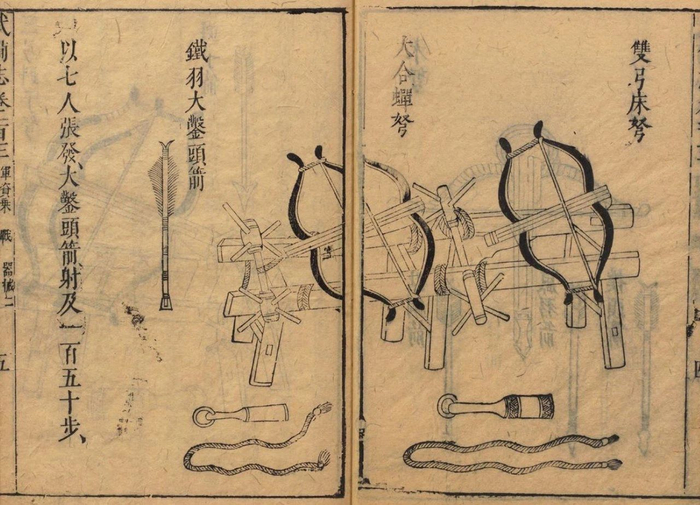 雙弓床弩
大合蟬弩
鐵羽大鑿頭箭
以七人張發、大鑿頭箭射及一百五十步、
備志卷一百三 軍資乘 戰 器械二 五